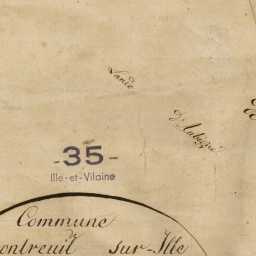 Lande
d'Aubigné
-35-
Ille-et-Vilaine
Commune
ontreuil sur-Ille